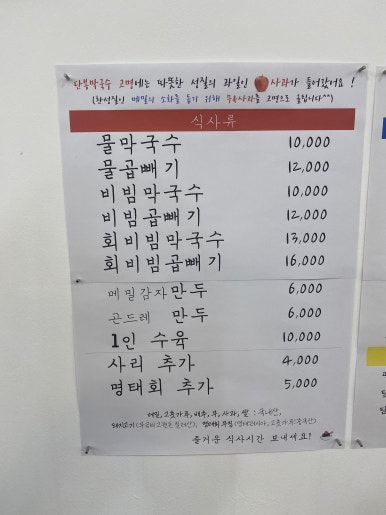 단풍막국수 고명에는 따뜻한 성질의 과일인 사과가 들어갔어요 !
(찬성질의 메밀의 소화를 돕기 위해 무&사과를 고명으로 올립니다^^)
식사류
물막국수 10,000
물곱빼기 12,000
비빔막국수 10,000
비빔곱빼기 12,000
회비빔막국수 13,000
회비빔곱빼기 16,000
메밀감자만두 6,000
곤드레 만두 6,000
1인 수육 10,000
사리 추가 4,000
명태회 추가 5,000
메밀,고춧가루,배추,무,사과,쌀 : 국내산,
즐거운 식사시간 보내세요!